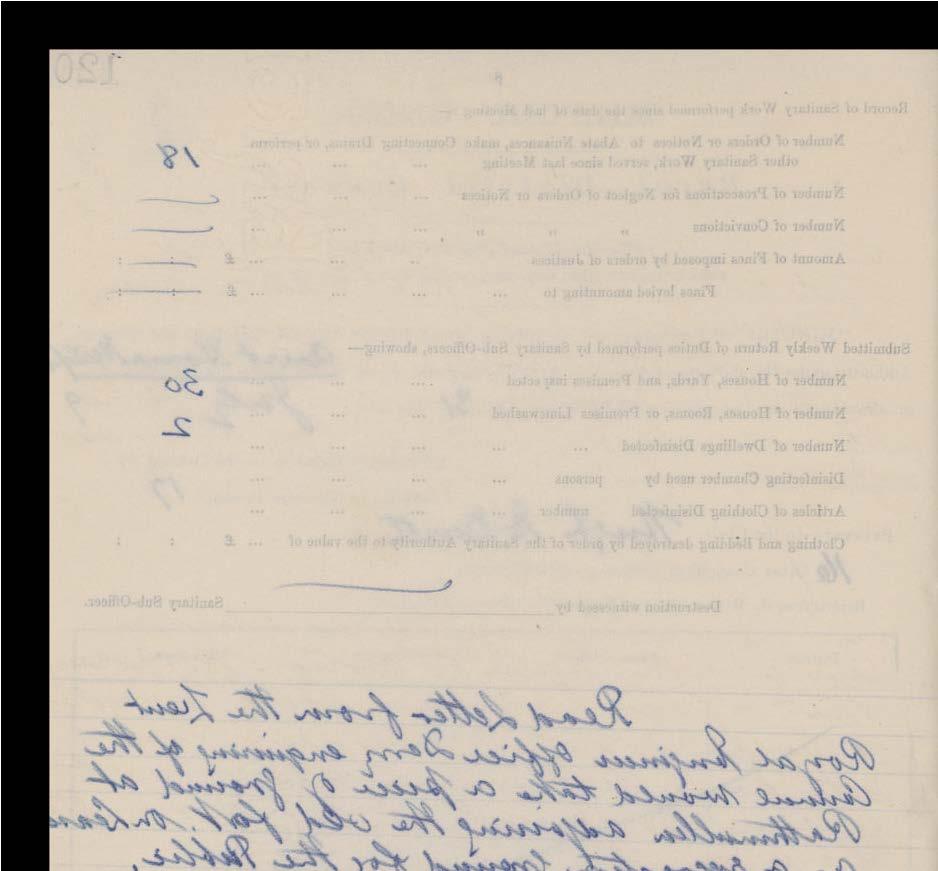 120
8
Record of Sanitary Work performed since the date of last Meeting :—
Number of Orders or Notices to Abate Nuisances, make Connecting Drains, or perform
other Sanitary Work, served since last Meeting ... ... ... 18
Number of Prosecutions for Neglect of Orders or Notices ... ... ...
Number of Convictions " " " ... ... ...
Amount of Fines imposed by orders of Justices ... ... ... £ : :
Fines levied amounting to ... ... ... ... £ : :
Submitted Weekly Return of Duties performed by Sanitary Sub-Officers, showing—
Number of Houses, Yards, and Premises inspected ... ... ... 30
Number of Houses, Rooms, or Premises Limewashed ... ... ... 2
Number of Dwellings Disinfected ... ... ... ... ...
Disinfecting Chamber used by persons ... ... ... ...
Articles of Clothing Disinfected number ... ... ...
Clothing and Bedding destroyed by order of the Sanitary Authority to the value of ... £ : :
Destruction witnessed by Sanitary Sub-Officer.
Read Letter from the Lieut
Royal Engineer Office enquiring if the
Council would take a piece of ground at
Rathmullen adjoining the old fort on Lease
as a recreation ground for the Public,